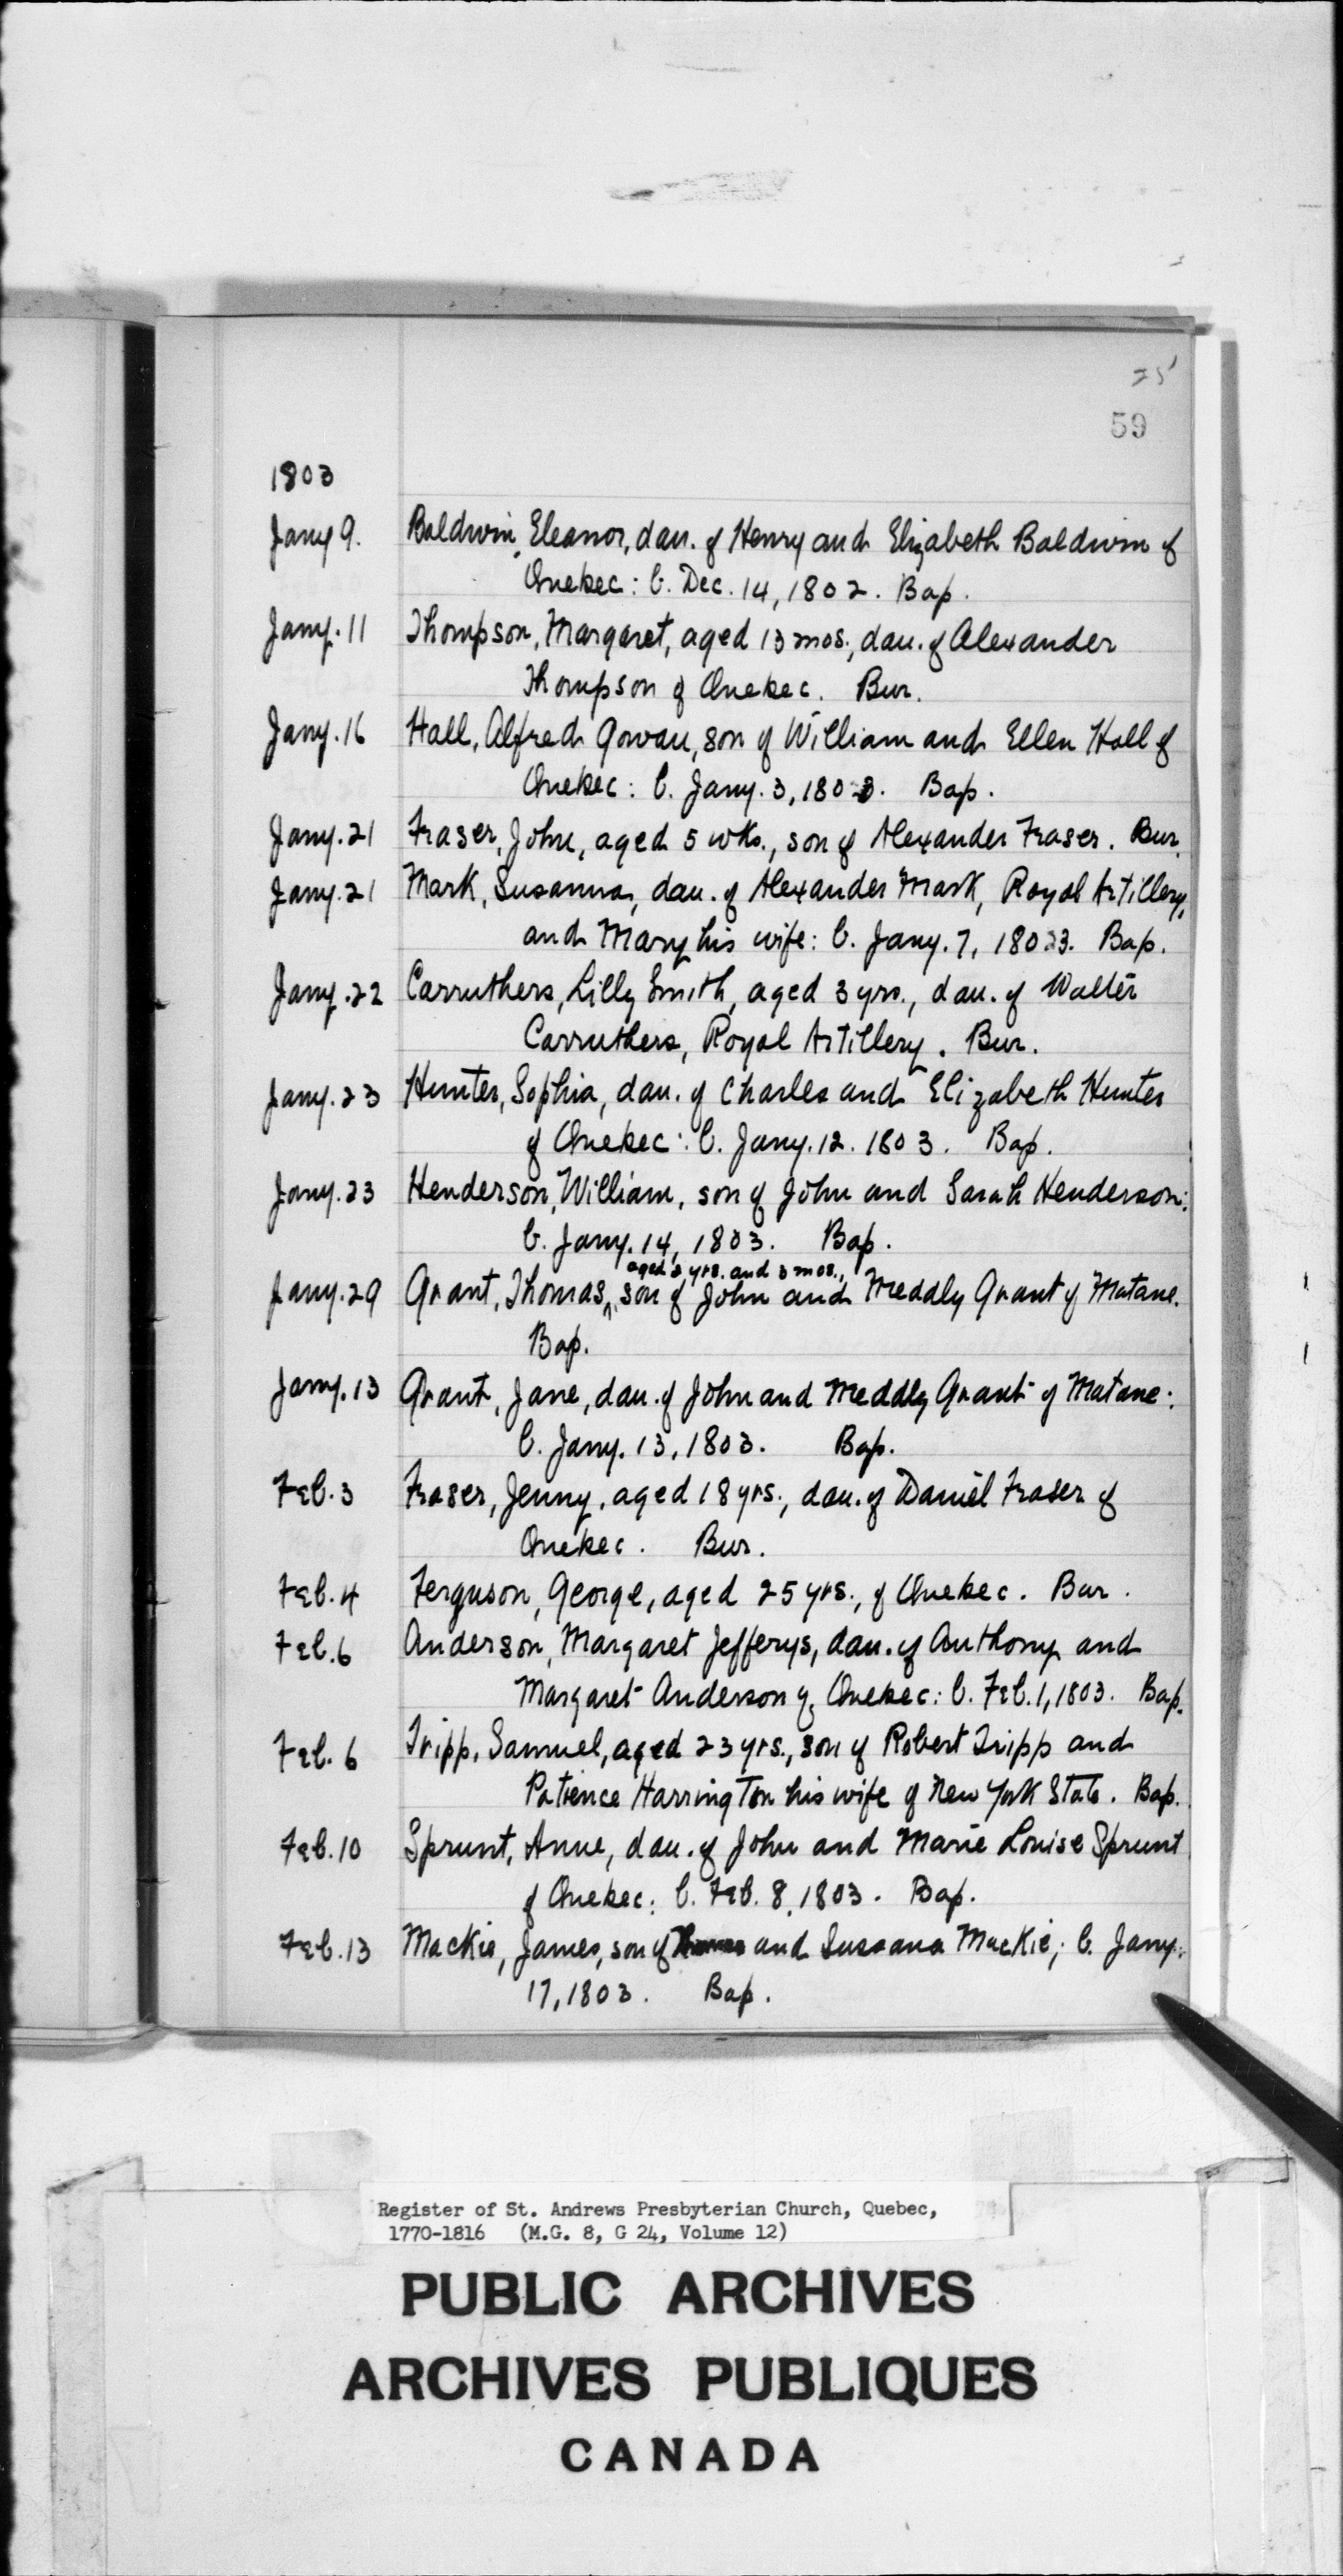 75
59
1803
Jany 9. Baldwin, Eleanor, dau. of Henry and Elizabeth Baldwin of
Quebec: b. Dec. 14, 1802. Bap.
Jany. 11 Thompson, Margaret, aged 13 mos., dau. of Alexander
Thompson of Quebec. Bur.
Jany. 16 Hall, Alfred Gowan, son of William and Ellen Hall of
Quebec: b. Jany. 3, 1803. Bap.
Jany. 21 Fraser, John, aged 5 wks., son of Alexander Fraser. Bur.
Jany. 21 Mark, Susanna, dau. of Alexander Mark, Royal Artillery,
and Mary his wife: b. Jany. 7, 1803. Bap.
Jany. 22 Carruthers, Lilly Smith, aged 3 yrs., dau. of Walter
Carruthers, Royal Artillery. Bur.
Jany. 23 Hunter, Sophia, dau. of Charles and Elizabeth Hunter
of Quebec: b. Jany. 12. 1803. Bap.
Jany. 23 Henderson, William, son of John and Sarah Henderson:
b. Jany. 14, 1803. Bap.
aged 2 yrs. and 3 mos.,
Jany. 29 Grant, Thomas, son of John and Meddly Grant of Matane.
Bap.
Jany. 13 Grant, Jane, dau. of John and Meddly Grant of Matane:
b. Jany. 13, 1803. Bap.
Feb. 3 Fraser, Jenny, aged 18 yrs., dau. of Daniel Fraser of
Quebec. Bur.
Feb. 4 Ferguson, George, aged 25 yrs., of Quebec. Bur.
Feb. 6 Anderson, Margaret Jefferys, dau. of Anthony and
Margaret Anderson of Quebec: b. Feb. 1, 1803. Bap.
Feb. 6 Tripp, Samuel, aged 23 yrs., son of Robert Tripp and
Patience Harrington his wife of New York State. Bap.
Feb. 10 Sprunt, Anne, dau. of John and Marie Louise Sprunt
of Quebec: b. Feb. 8, 1803. Bap.
Feb. 13 Mackie, James, son of and Sussana Mackie; b. Jany.
17, 1803. Bap.
Register of St. Andrews Presbyterian Church, Quebec,
1770-1816 (M.G. 8, G 24, Volume 12)
PUBLIC ARCHIVES
ARCHIVES PUBLIQUES
CANADA